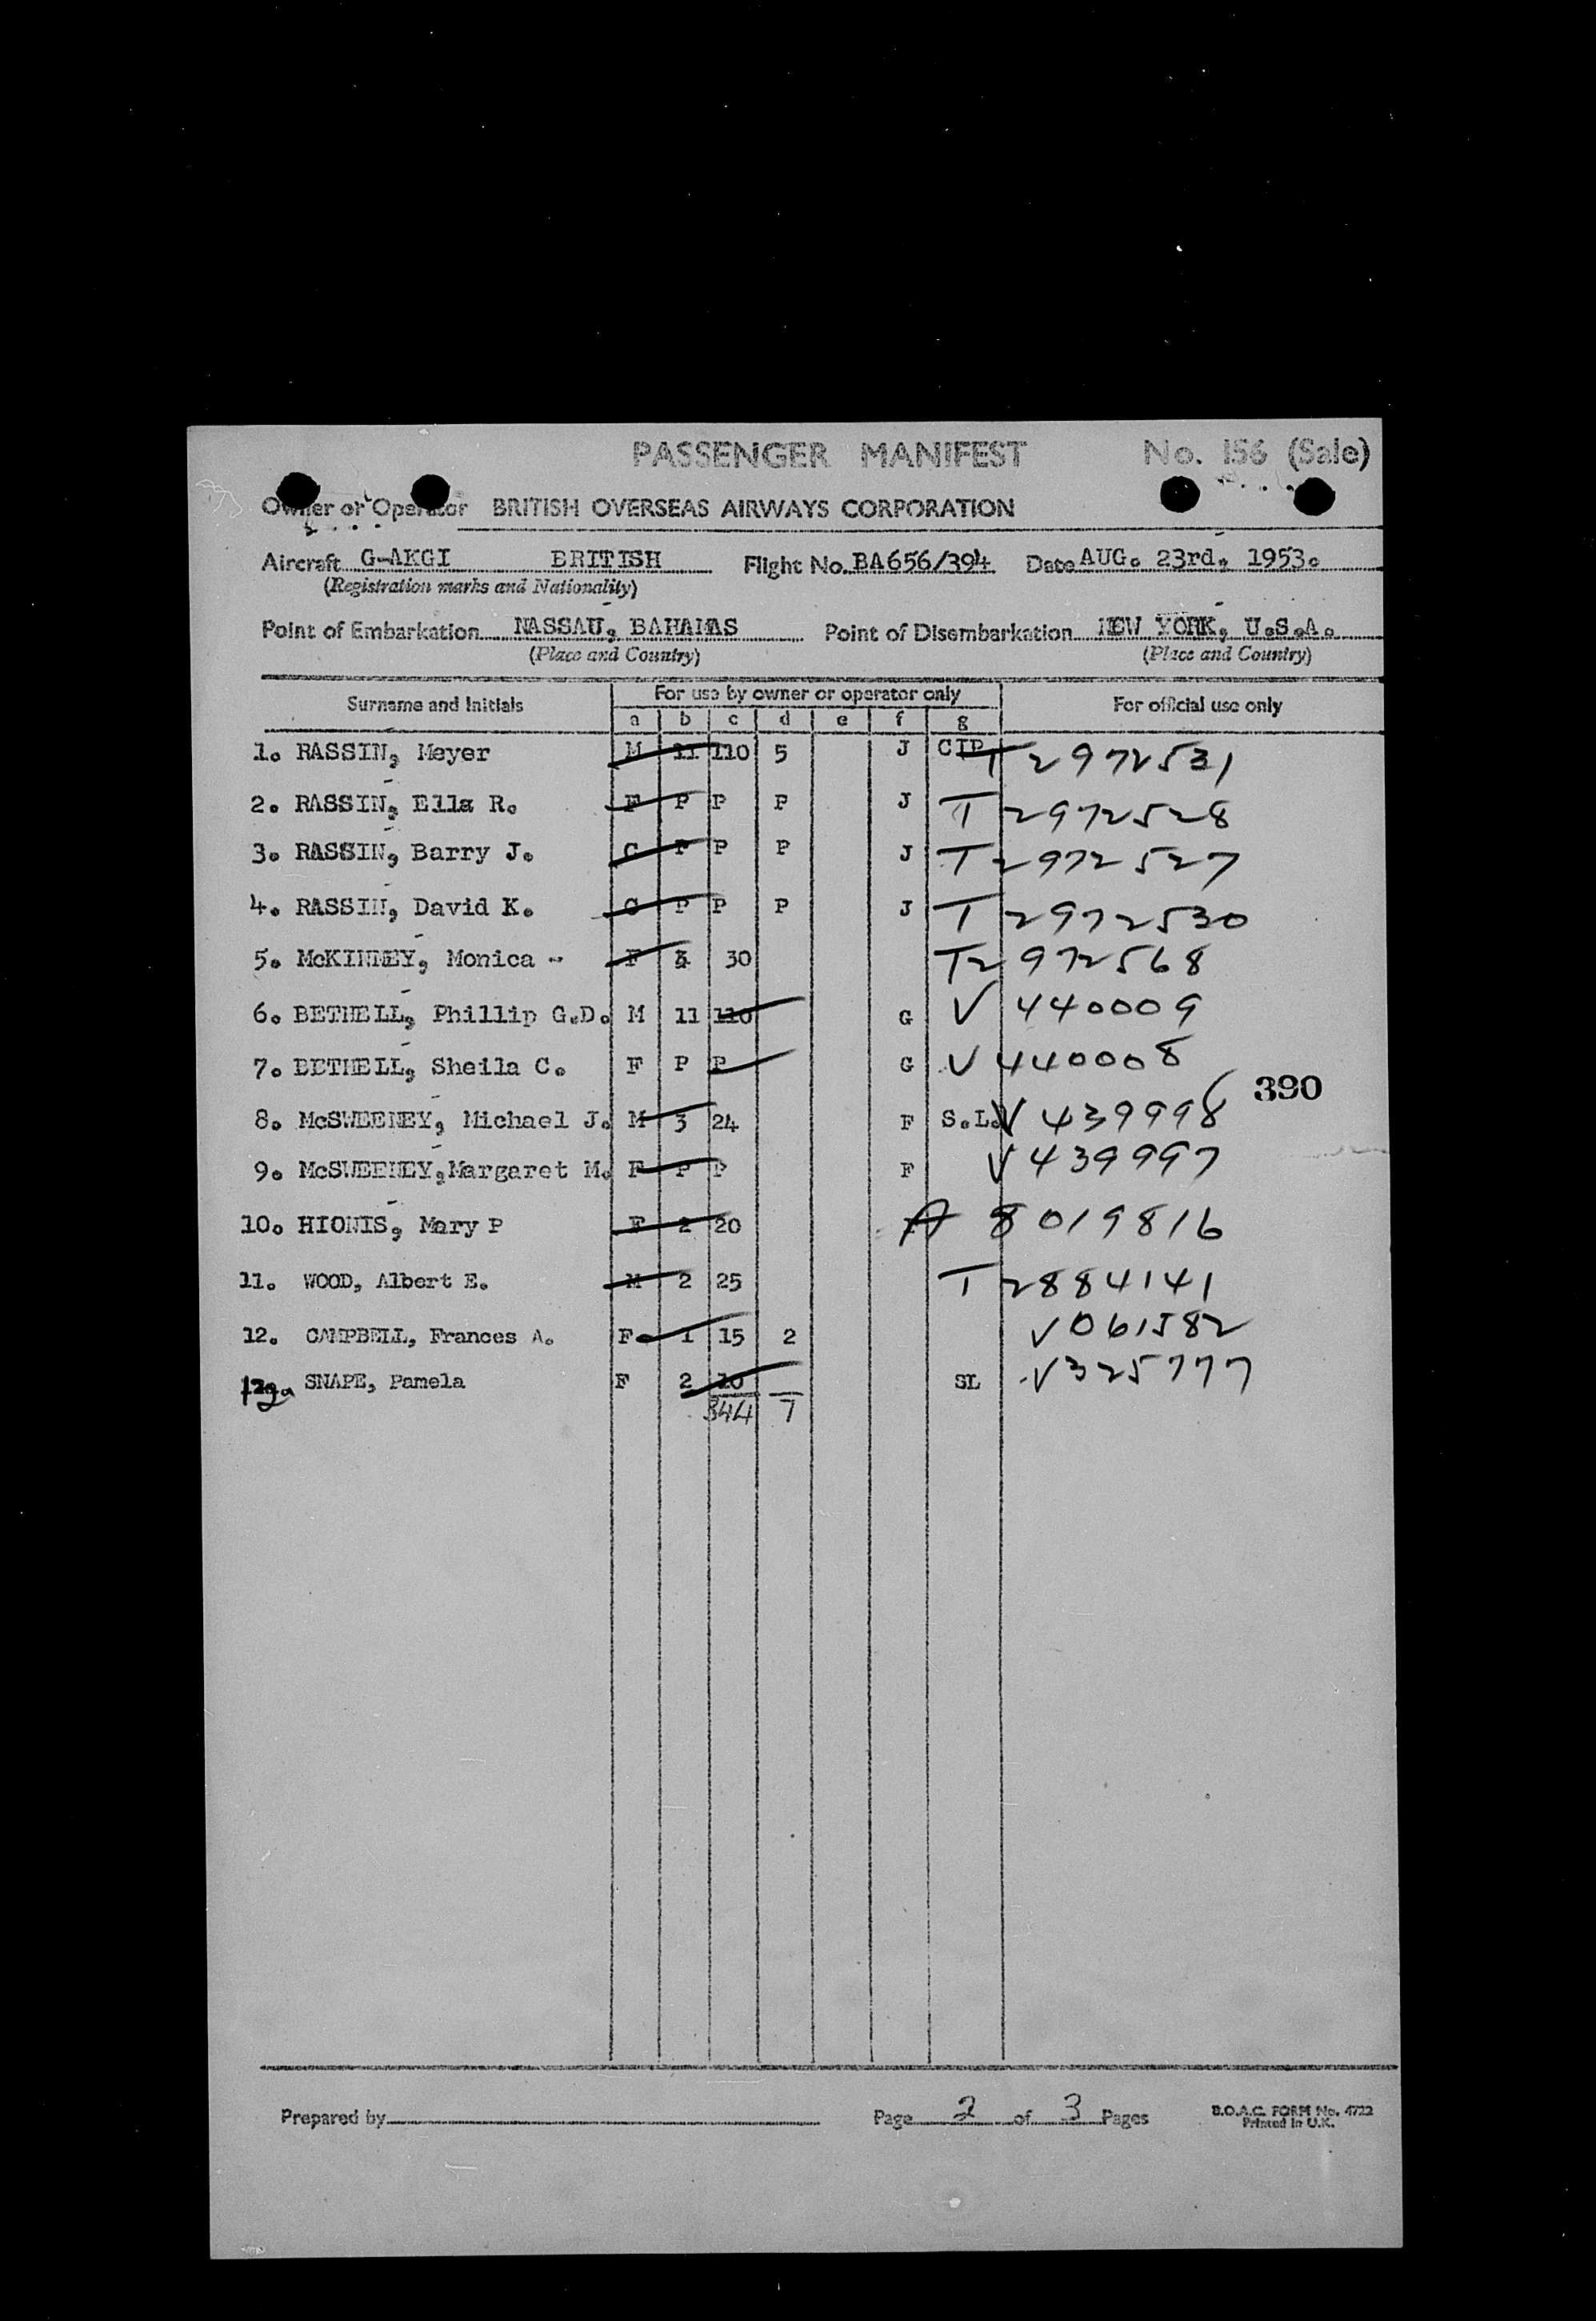 PASSENGER MANIFEST No. 156 (Sale)
Owner or Operator BRITISH OVERSEAS AIRWAYS CORPORATION
Aircraft G-AKGI BRITISH Flight No. BA656/394 Date AUG. 23rd. 1953.
(Registration marks and Nationality)
Point of Embarkation NASSAU, BAHAMAS Point of Disembarkation NEW YORK, U.S.A.
(Place and Country) (Place and Country)
Surname and Initials For use by owner or operator only For official use only
a b c d e f g
1. RASSIN, Meyer M 11 110 5 J CIP T 2972531
2. RASSIN, Ella R. F P P P J T 2972528
3. RASSIN, Barry J. C P P P J T 2972527
4. RASSIN, David K. C P P P J T 2972530
5. McKINNEY, Monica - F 30 T2972568
6. BETHELL, Phillip G.D. M 11 110 G V 440009
7. BETHELL, Sheila C. F P P G V 440008
390
8. McSWEENEY, Michael J. M 3 24 F S.L. V 439998
9. McSWEENEY, Margaret M. F P P F V 439997
10. HIONIS, Mary P F 2 20 A 8019816
11. WOOD, Albert E. M 2 25 T 2884141
12. CAMPBELL, Frances A. F 1 15 2 V061582
SNAPE, Pamela F 2 10 SL V325777
344 7
Prepared by Page 2 of 3 Pages B.O.A.C. FORM No. 4722
Printed in U.K.